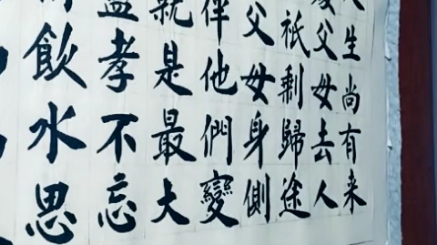 生尚有来
處父母去人
祇剩歸途
父母身側
他們變
就是最大
盡孝不忘
飲水思